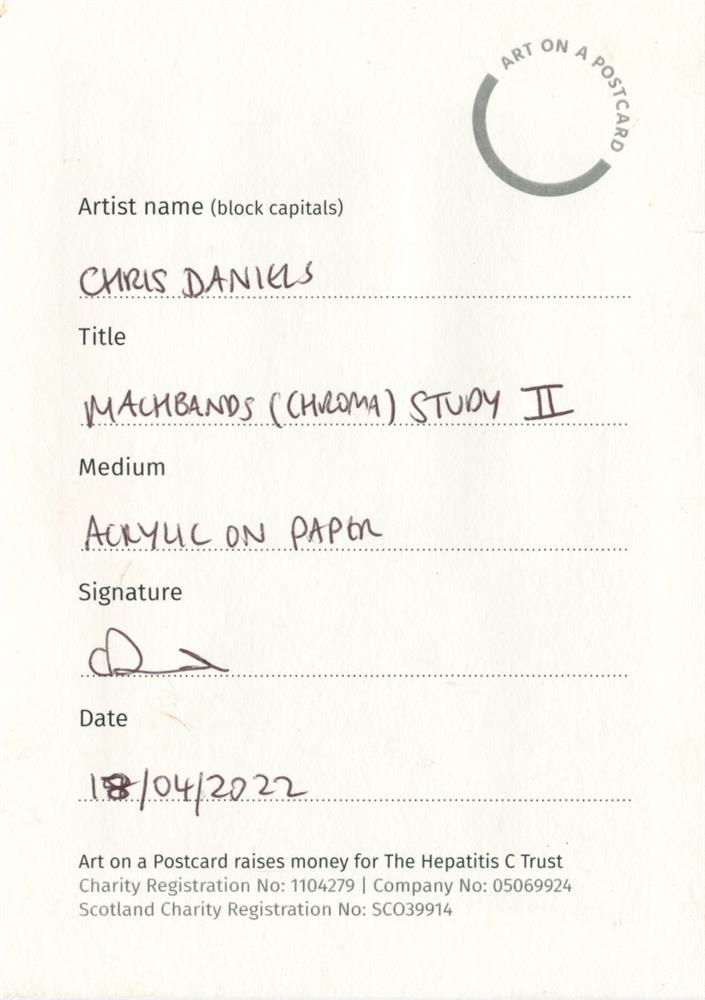 ART ON A POSTCARD
Artist name (block capitals)
CHRIS DANIELS
Title
MACHBANDS (CHROMA) STUDY II
Medium
ACRYLIC ON PAPER
Signature
Date
18/04/2022
Art on a Postcard raises money for The Hepatitis C Trust
Charity Registration No: 1104279 | Company No: 05069924
Scotland Charity Registration No: SCO39914